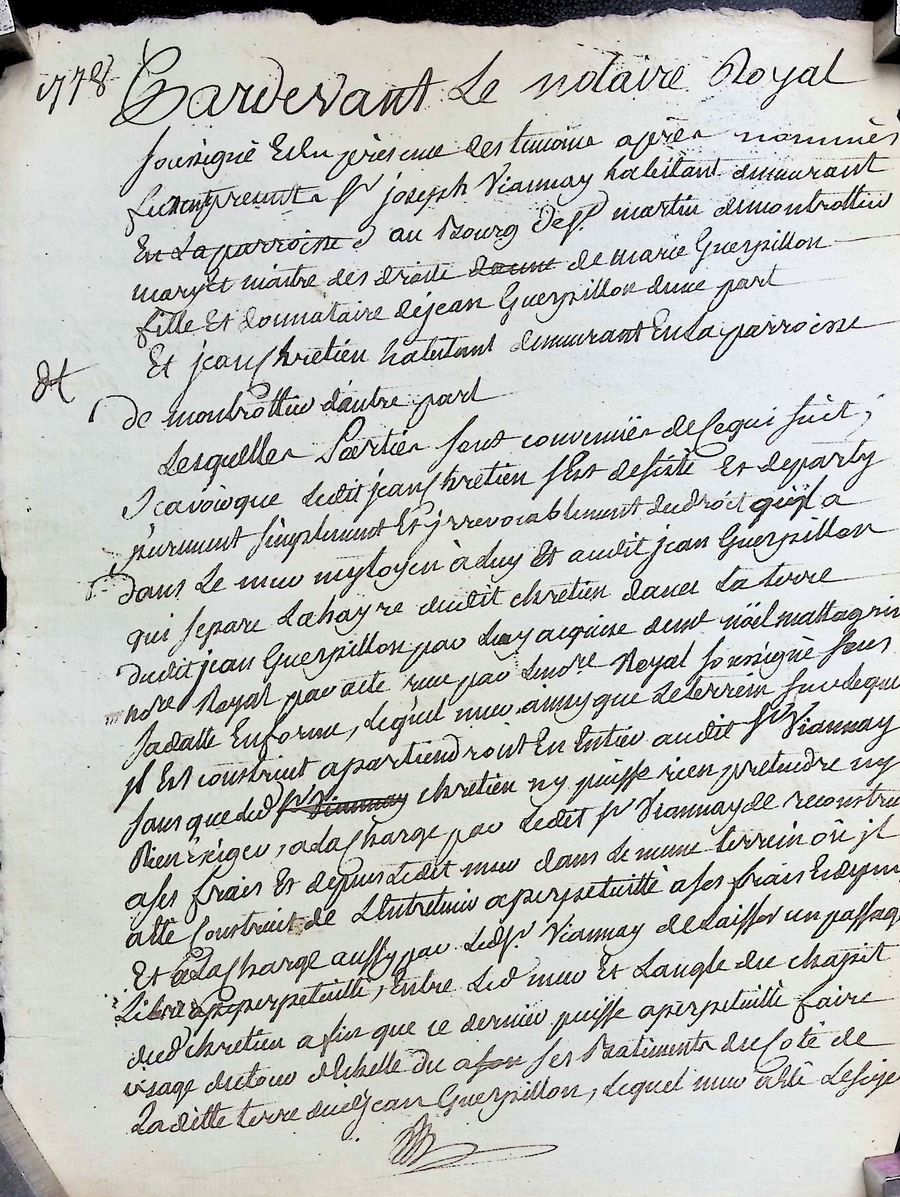 1778 Pardevant Le notaire Royal
soussigné Et En présence des temoins après nommés
furent présents Sr joseph Viannay habitant demeurant
En La parroisse au Bourg de St martin demontrottier
mary Et maitre des droits de marie Guerpillon
fille Et donnataire de jean Guerpillon dune part
Et jean Chretien habitant demeurant En La parroisse
de montrottier dautre part
Lesquelles Parties sont convenües de Ce qui suit ;
Scavoir que Ledit jean Chretien sEst desisté Et departy
purement simplement Et jrrevocablement du droit quil a
dans Le mur mytoyen à Luy Et audit jean Guerpillon
qui separe Lahayre dudit chretien davec La terre
dudit jean Guerpillon par Luy acquise de noël mattagrin
nore Royal par acte reçu par Le nore Royal soussigné sous
sadatte En forme, Lequel mur ainsy que Le terrein sur Lequel
jl Est construit apartiendront En Entier audit Sr Viannay
sans que Led Sr Viannay chretien ny puisse rien pretendre ny
Rien Exiger, a La Charge par Ledit Sr Viannay de reconstruire
a ses frais Et depens Ledit mur dans Le meme terrein où jl
a été Construit de L'Entretenir a perpetuitté a ses frais Et depens
Et a La Charge aussy par Led Sr Viannay de Laisser un passage
Libre a perpetuitté, Entre Led mur Et Langle du chapit
dud chretien afin que ce dernier puisse a perpetuitté faire
usage du tour dEchelle du a son ses Batiments du Coté de
Laditte terre dud jean Guerpillon, Lequel mur